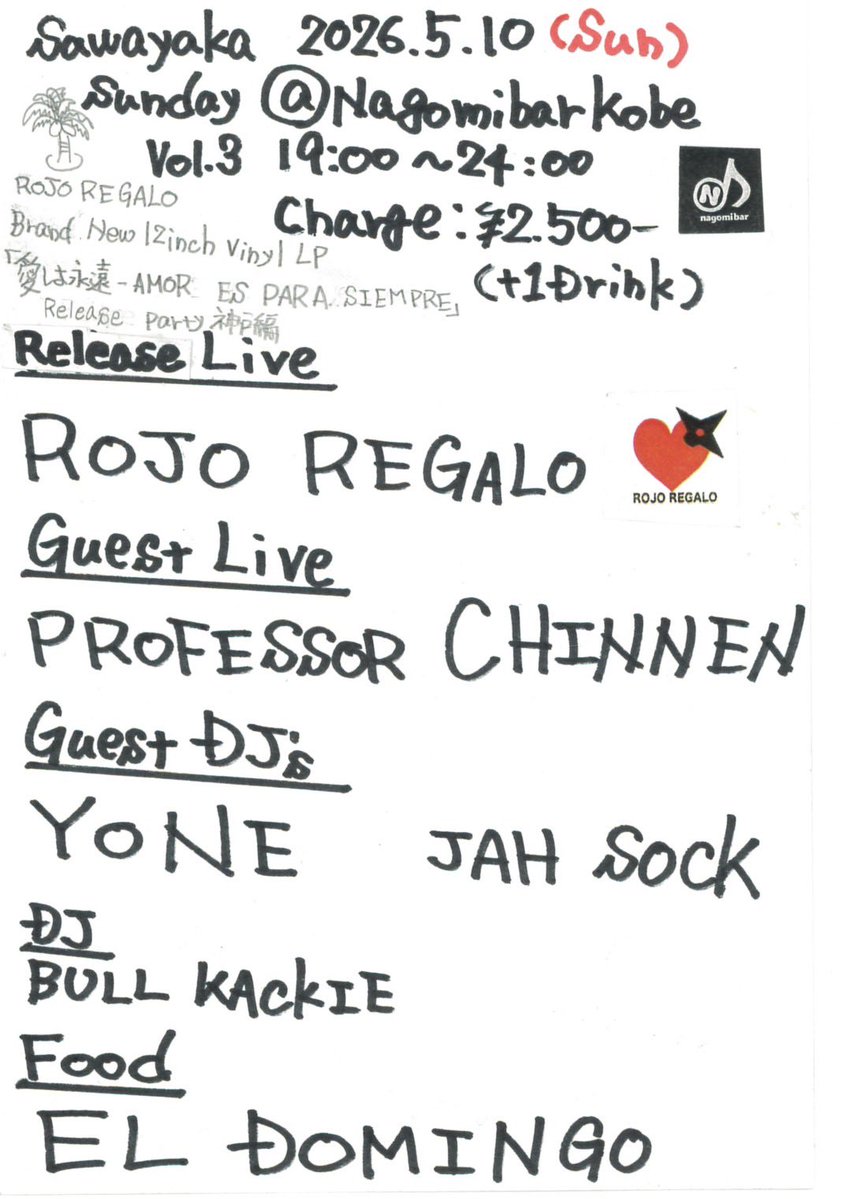 Sawayaka 2026.5.10 (Sun)
Sunday @Nagomibar Kobe
Vol.3 19:00~24:00
nagomibar
ROJO REGALO
Charge:¥2.500-
Brand New 12inch Vinyl LP
「愛は永遠-AMOR ES PARA SIEMPRE」
(+1Drink)
Release Party 神戸編
Release Live
ROJO REGALO
ROJO REGALO
Guest Live
PROFESSOR CHINNEN
Guest DJ's
YONE JAH SOCK
DJ
BULL KACKIE
Food
EL DOMINGO